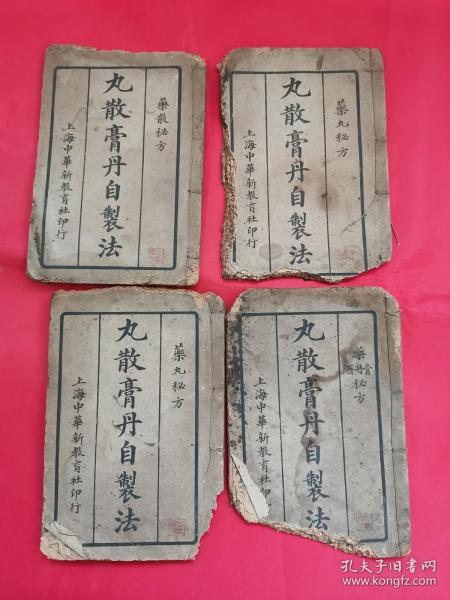 藥散秘方
丸散膏丹自製法
上海中華新教育社印行
藥丸秘方
丸散膏丹自製法
上海中華新教育社印行
藥丸秘方
丸散膏丹自製法
上海中華新教育社印行
藥膏丹酒秘方
丸散膏丹自製法
上海中華新教育社印行
孔夫子旧书网
www.kongfz.com